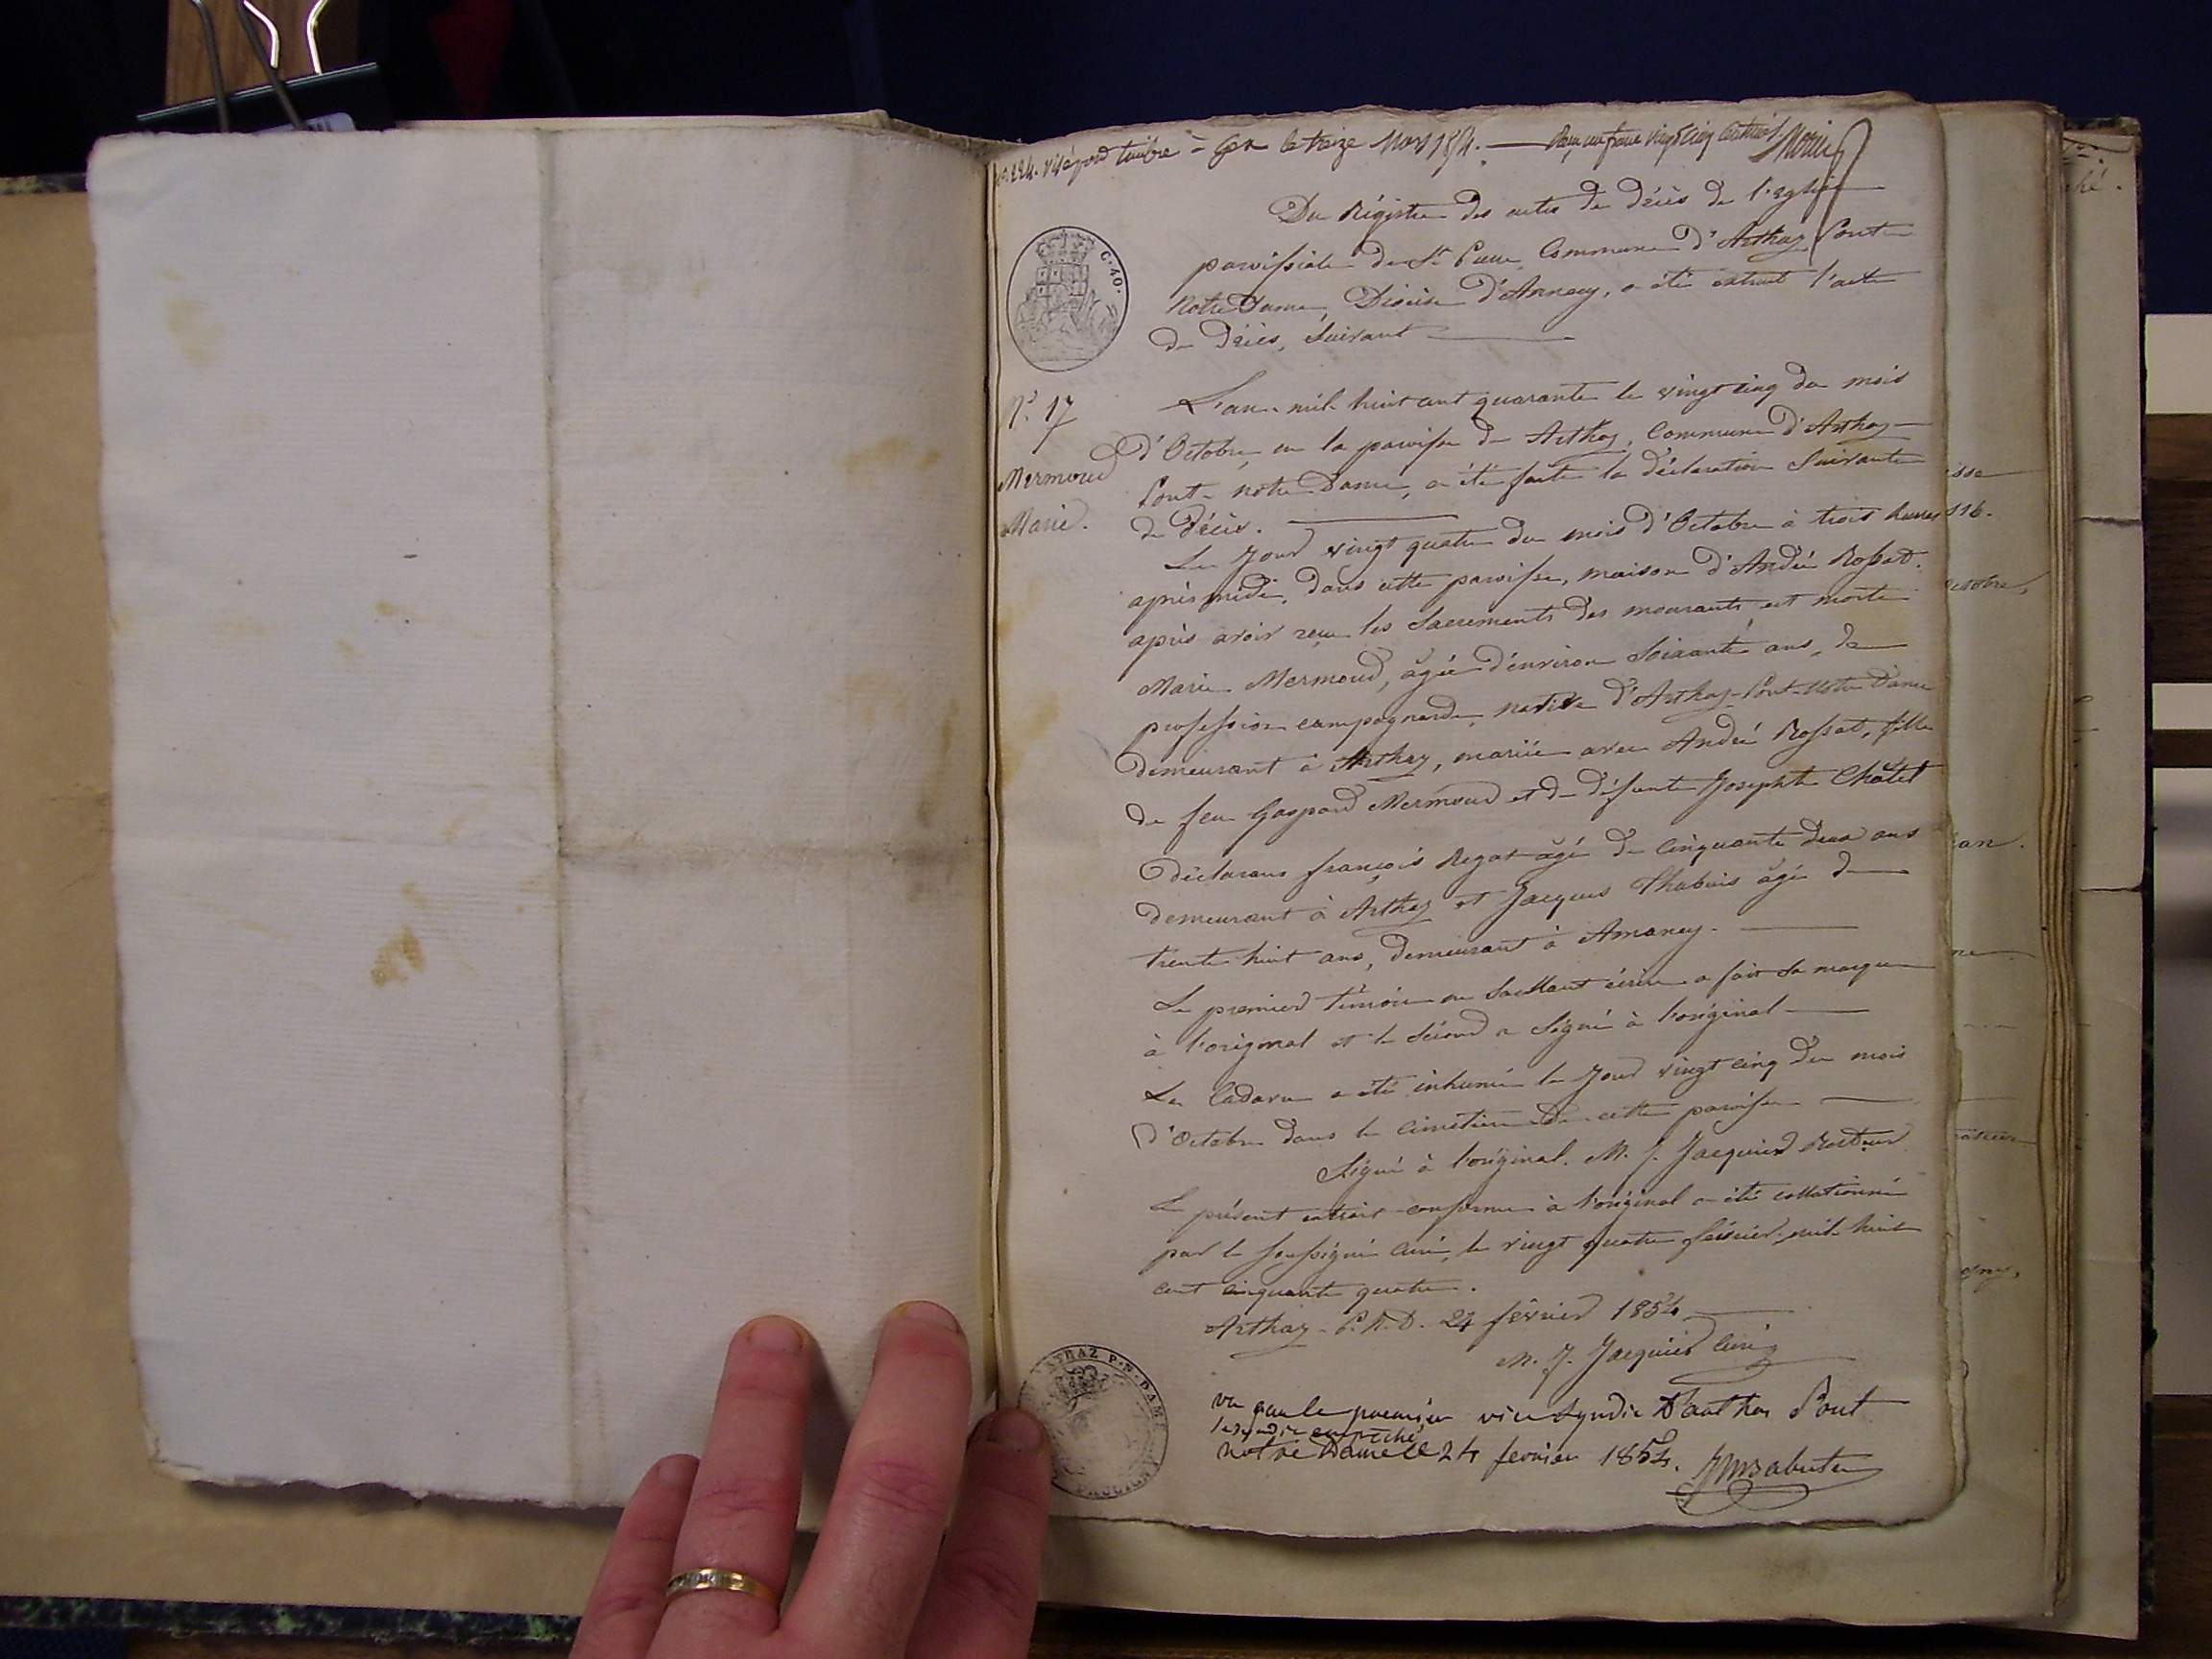 visé pour timbre à Gex le treize Mars 1854. — Reçu un franc vingt cinq centimes. Morin
Du Régistre des actes de décès de l'eglise
paroissiale de St Pierre, Commune d'Arthaz Pont
Notre Dame, Diocèse d'Annecy, a été extrait l'acte
de Décès, Suivant
C. 40.
N.o 17
Mermoud
Marie.
L'an mil huit cent quarante le vingt cinq du mois
d'Octobre, en la paroisse de Arthaz, Commune d'Arthaz
Pont-notre Dame, a été faite la déclaration Suivante
de Décès.
Le Jour vingt quatre du mois d'Octobre à trois heures
après midi, dans cette paroisse, maison d'André Rossat.
après avoir reçu les Sacrements des mourants, est morte
Marie Mermoud, âgée d'environ Soixante ans, de
profession campagnarde, native d'Arthaz-Pont-Notre Dame
demeurant à Arthaz, mariée avec André Rossat, fille
de feu Gaspard Mermoud et de défunte Josephte Châtel
Déclarans françois Regat âgé de Cinquante deux ans
demeurant à Arthaz et Jacques Chabuis âgé de
trente huit ans, demeurant à Amancy.
Le premier témoin ne Sachant écrire a fait sa marque
à l'original et le Sécond a Signé à l'original
Le Cadavre a été inhumé le Jour vingt cinq du mois
d'Octobre dans le Cimetière de cette paroisse
Signé à l'original. M. J. Jacquier Recteur
Le présent extrait conforme à l'original a été collationné
par le soussigné Curé, le vingt quatre février mil huit
cent cinquante quatre.
Arthaz. P. N. D. 24 février 1854
M. J. Jacquier Curé
ARTHAZ P. N. DAME
vu par le premier vice Syndic D'arthas Pont
le syndic empêché
notre Dame le 24 fevrier 1854.
isse
116.
octobre,
ian.
ne